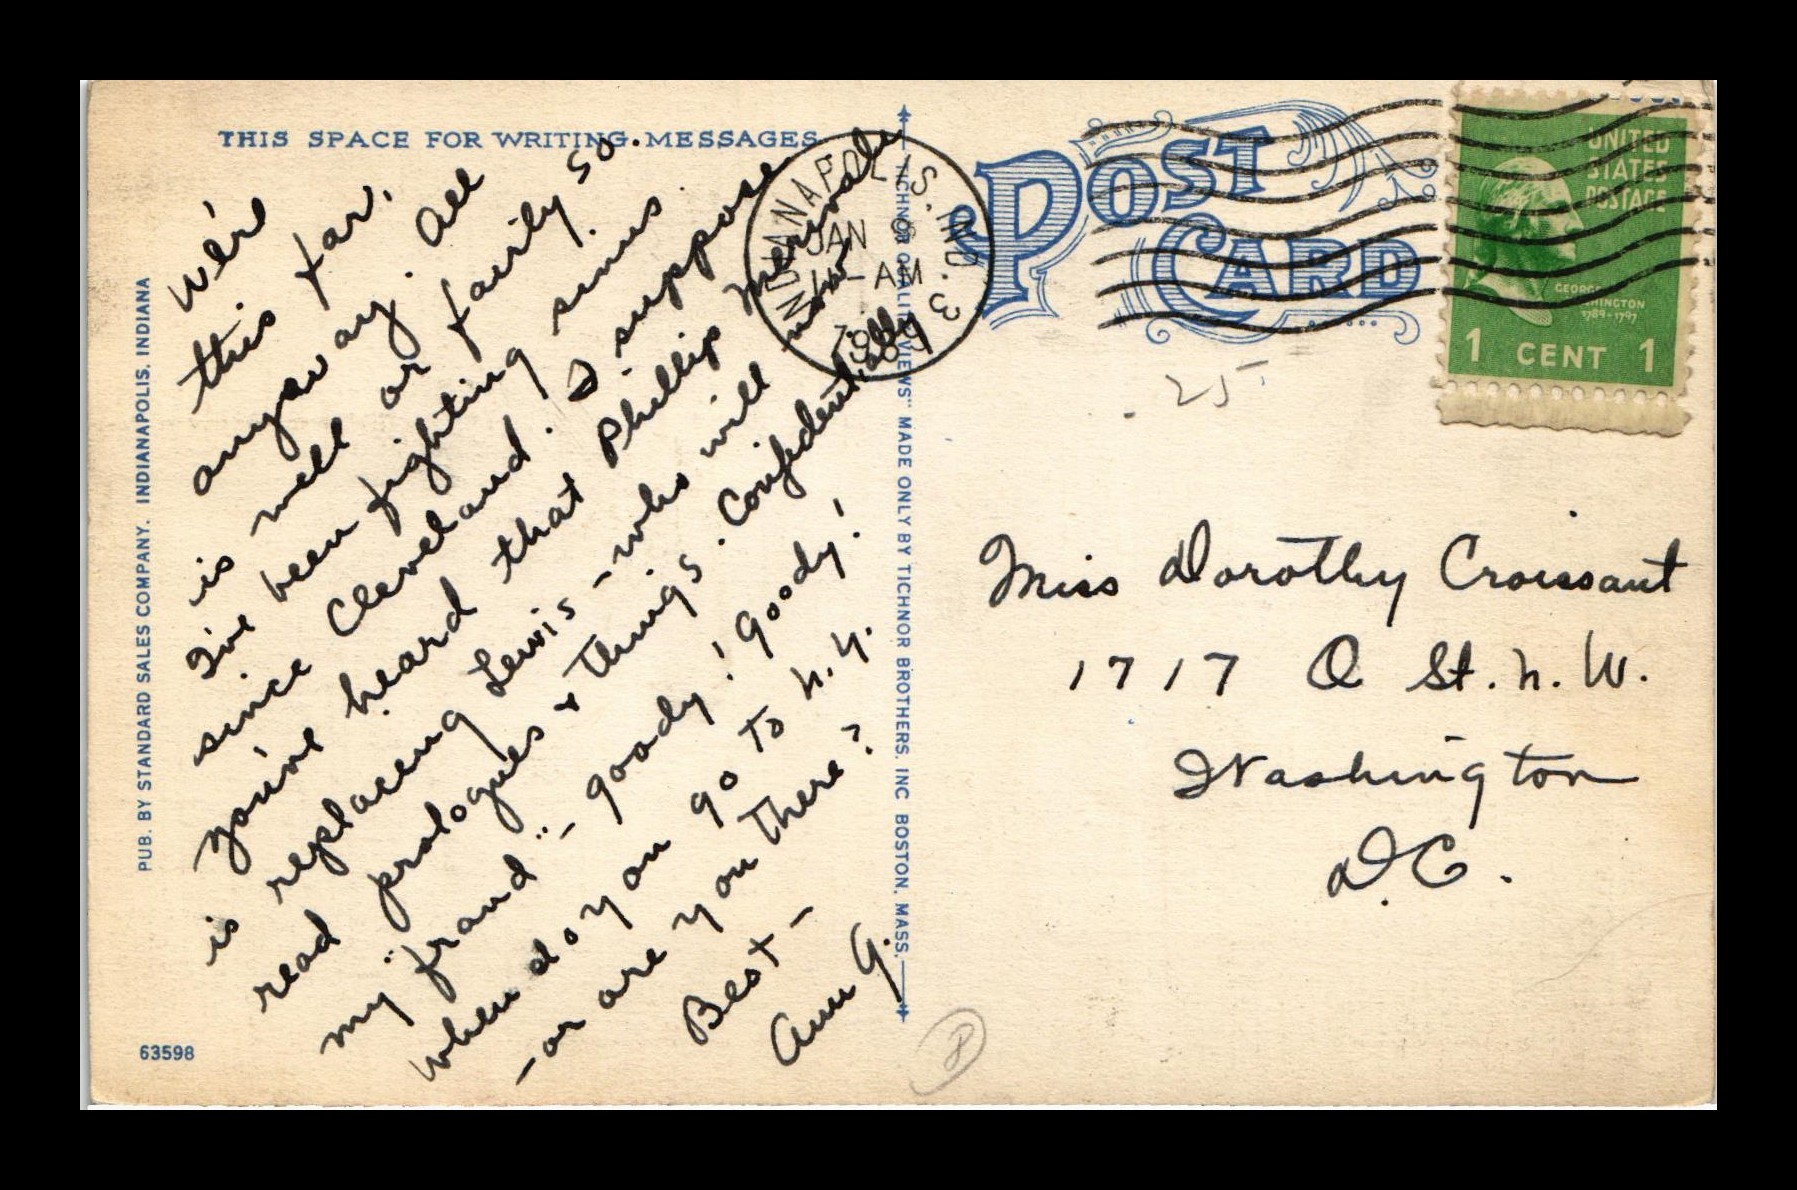 THIS SPACE FOR WRITING MESSAGES
We're
this far,
anyway. All
is well or fairly so.
I've been fighting sinus
since Cleveland. I suppose
you've heard that Phillip Merivale
is replacing Lewis - who will now
read prologues & things. Confidentially
my "friend" - goody! goody!
When do you go to N.Y.
- or are you there?
Best -
Ann G.
PUB. BY STANDARD SALES COMPANY. INDIANAPOLIS, INDIANA
63598
"TICHNOR QUALITY VIEWS" MADE ONLY BY TICHNOR BROTHERS, INC BOSTON, MASS.
INDIANAPOLIS, IND. 3
JAN
AM
1939
POST
CARD
UNITED
STATES
POSTAGE
GEORGE
WASHINGTON
1789-1797
1 CENT 1
.25
Miss Dorothy Croissant
1717 Q St. N.W.
Washington
D.C.